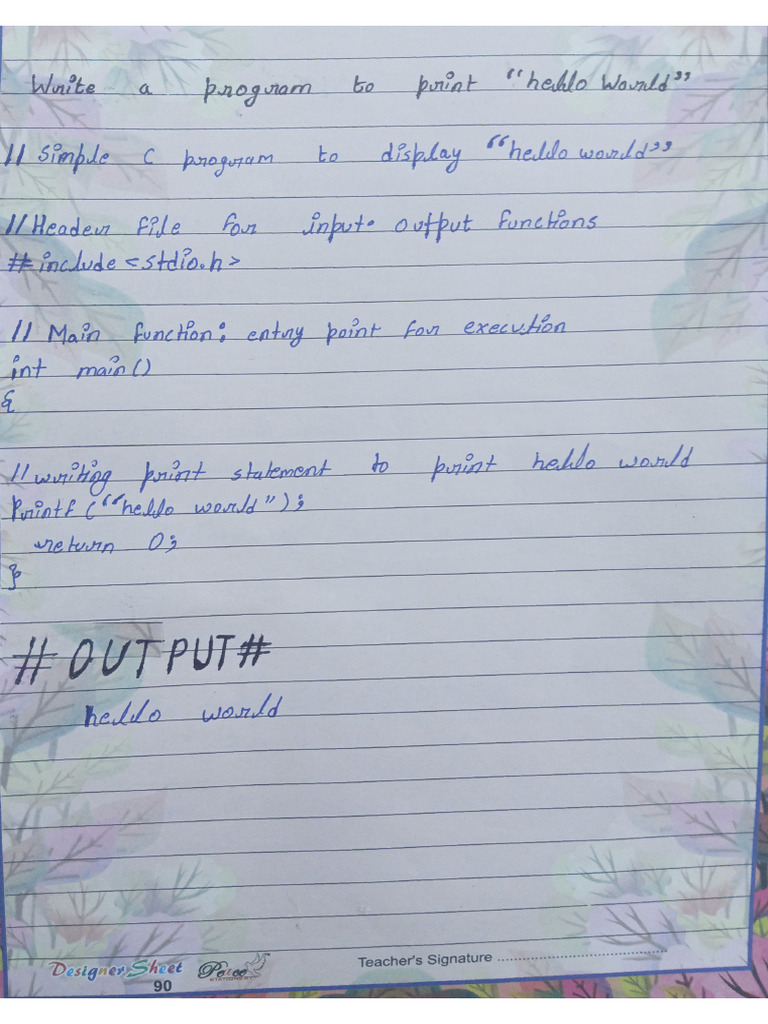 Write a program to print “hello World”
// Simple C program to display “hello world”
// Header file for input. output functions
# include <stdio.h>
// Main function: entry point for execution
int main()
{
// writing print statement to print hello world
Printf (“hello world”);
return 0;
}
# OUTPUT #
hello world
Teacher's Signature ........................................
Designer Sheet
90